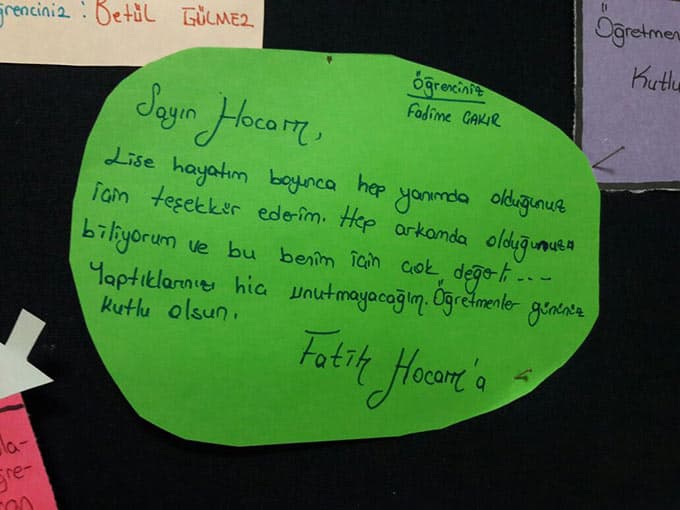 Öğrenciniz : Betül GÜLMEZ
Öğretmen
Kutlu
Öğrenciniz
Fadime ÇAKIR
Sayın Hocam,
Lise hayatım boyunca hep yanımda olduğunuz
için teşekkür ederim. Hep arkamda olduğunuzu
biliyorum ve bu benim için çok değerli ...
Yaptıklarınızı hiç unutmayacağım. Öğretmenler gününüz
kutlu olsun.
Fatih Hocam'a
la-
ğre-